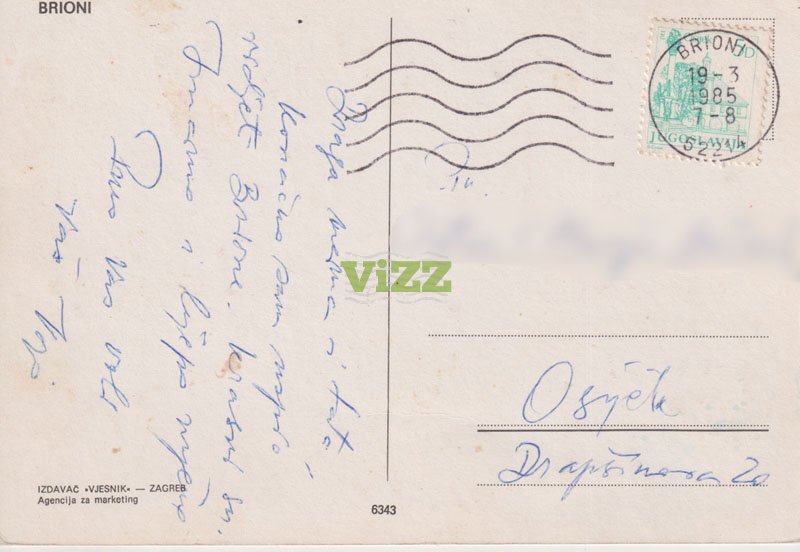 BRIONI
Draga mama i tata
konačno sam uspio
vidjet Brione. Krasni su.
Imamo i lijepo vrijeme
Puno Vas voli
Vaš
BRIONI
19-3
985
7-8
5221
5D
JUGOSLAVIJA
ViZZ
Osijek
Drapšinova 20
IZDAVAČ »VJESNIK« — ZAGREB
Agencija za marketing
6343